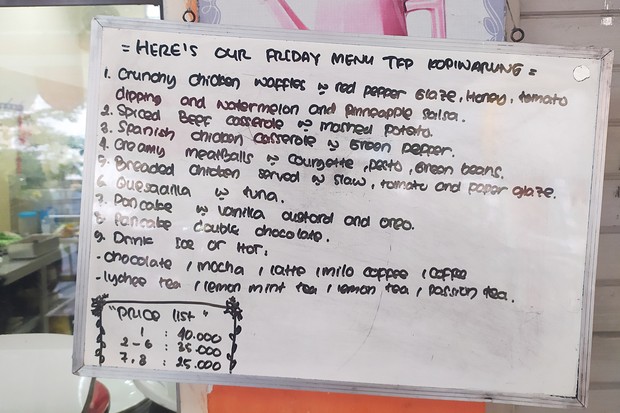 = HERE'S OUR FRIDAY MENU TFP KOPIWARUNG =
1. Crunchy chicken waffles w red pepper Glaze, Honey, tomato
dipping and watermelon and pinneapple salsa.
2. Spiced Beef casserole w mashed potato.
3. Spanish chicken casserole w Green pepper.
4. Creamy meatballs w courgette, pesto, Green beans.
5. Breaded chicken served w slaw, tomato and paper glaze.
6. Quesadilla w tuna.
7. Pancake w vanilla custard and oreo.
8. Pancake double chocolate.
9. Drink Ice or Hot.
- chocolate / mocha / latte / milo coffee / coffee
- lychee tea / lemon mint tea / lemon tea / passion tea.
"PRICE list"
1 : 40.000
2-6 : 35.000
7,8 : 25.000